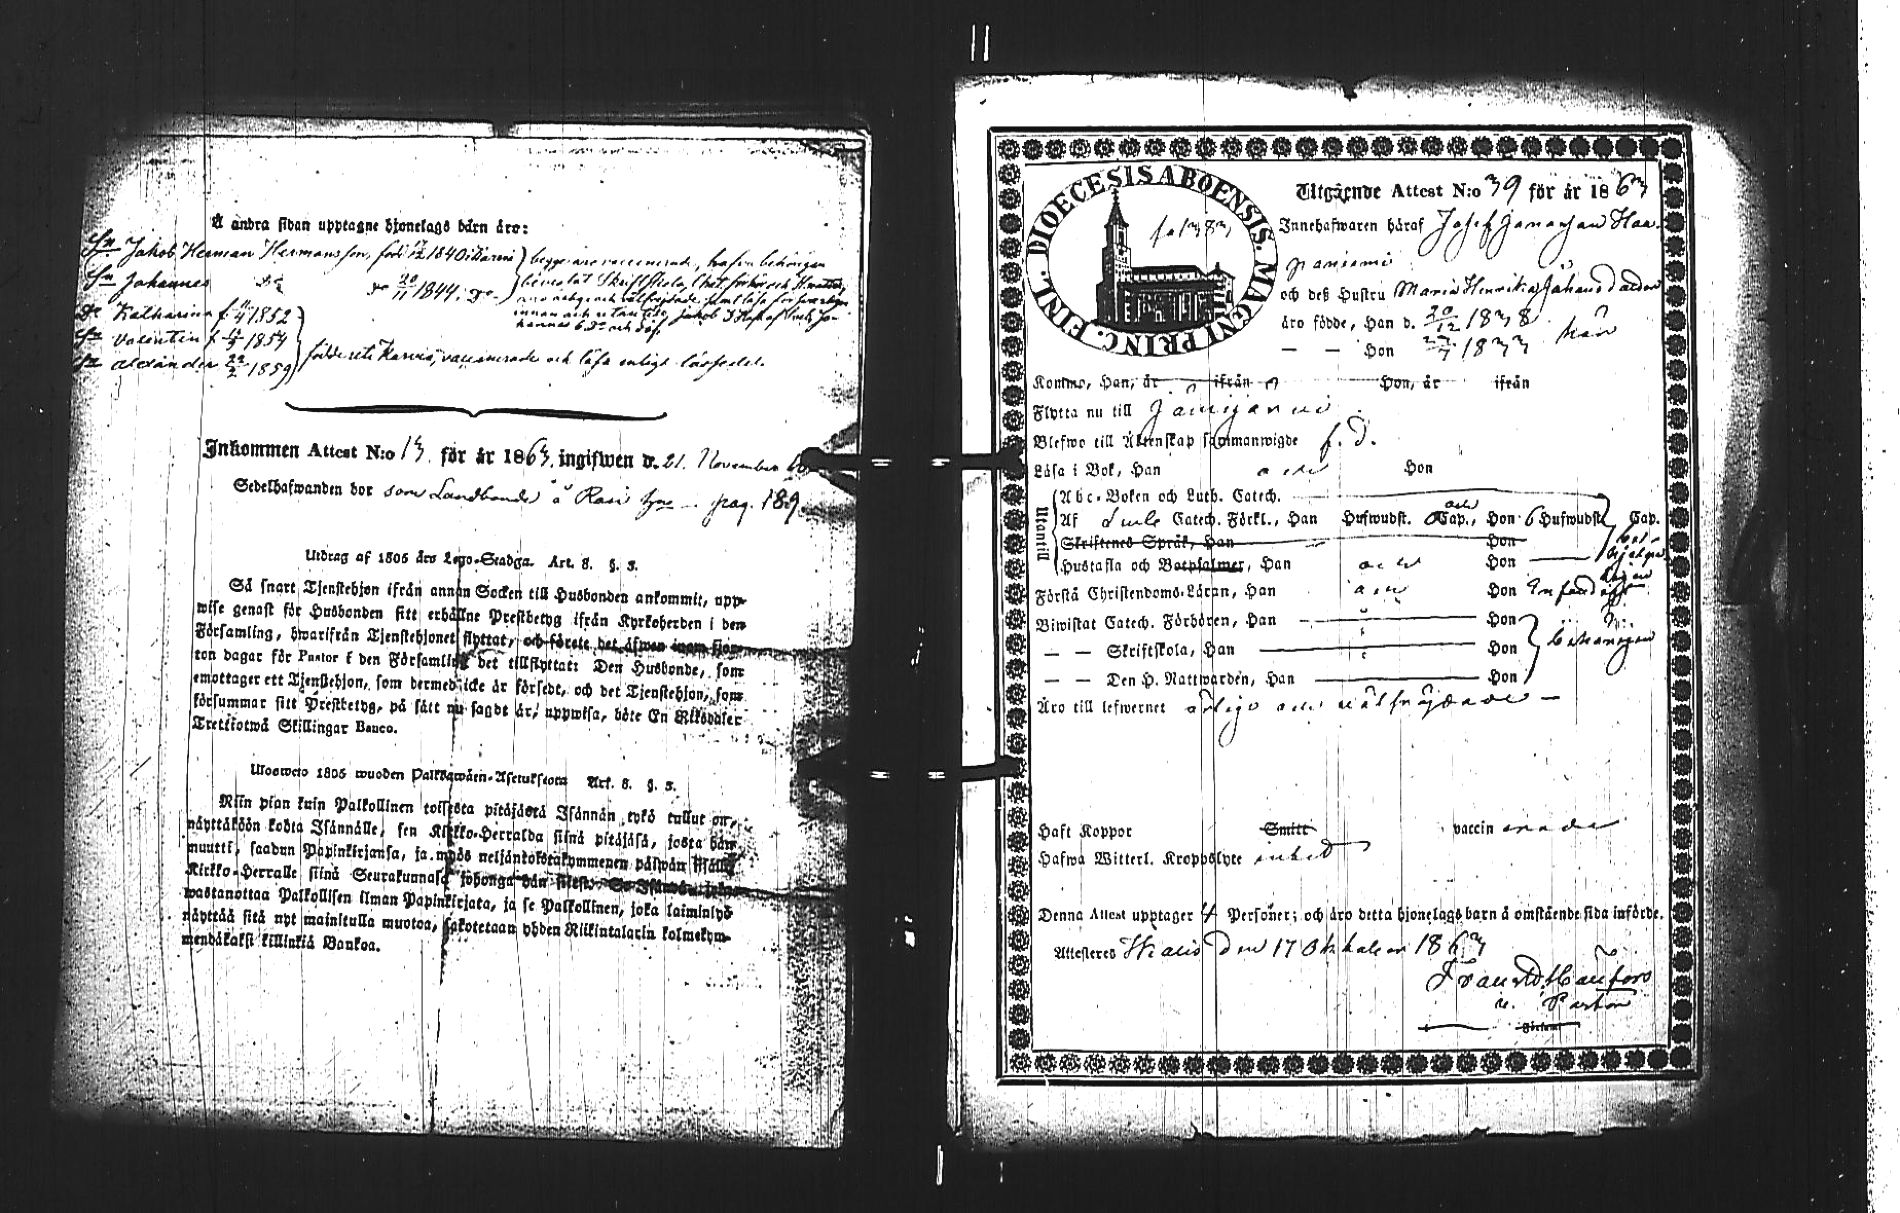 Å andra sidan upptagne hjonelags barn äro:
Sn Jakob Herman Hermansson, född 17/12 1840 i Karvi
Sn Johannes do 20/11 1844. do
begge äro vaccinerade, hafva behörigen
bevistat Skriftskola,
do Katharina f. 1852
Sn Valentin f. 1854
Sn Alexander 22/2 1859
födde uti Karvia, vaccinerade och läsa enligt
Inkommen Attest N:o 13. för år 1863. ingifwen d. 21. November
Sedelhafwanden bor som Landbonde å Rasi pag. 189.
Utdrag af 1805 års Lego-Stadga. Art. 8. §. 3.
Så snart Tjenstehjon ifrån annan Socken till Husbonden ankommit, upp-
wise genast för Husbonden sitt erhållne Prestbetyg ifrån Kyrkoherden i den
Församling, hwarifrån Tjenstehjonet flyttat, och förete det äfwen inom fjor-
ton dagar för Pastor i den Församling det tillflyttat: Den Husbonde, som
emottager ett Tjenstehjon, som dermed icke är försedt, och det Tjenstehjon, som
försummar sitt Prestbetyg, på sätt nu sagdt är, uppwisa, böte En Riksdaler
Trettiotwå Skillingar Banco.
Ulosweto 1805 wuoden Palkkawäen-Asetuksesta Art. 8. §. 3.
Niin pian kuin Palkollinen toisesta pitäjästä Isännän tykö tullut on,
näyttäköön kohta Isännälle, sen Kirkko-Herralda siinä pitäjäsä, josta hän
muutti, saadun Papinkirjansa, ja myös neljäntoistakymmenen päiwän sisällä
Kirkko-Herralle siinä Seurakunnasa johonga hän siirsi. Se Isäntä, joka
wastanottaa Palkollisen ilman Papinkirjata, ja se Palkollinen, joka laiminlyö
näyttää sitä nyt mainitulla muotoa, sakotetaan yhden Riikintalarin kolmekym-
mendäkaksi killinkiä Bankoa.
DIOECESIS ABOENSIS. MAGNI PRINC. FINL.
Utgående Attest N:o 39 för år 1863
Innehafwaren häraf Josef Johansson Haa-
paniemi
och deß Hustru Maria Henrika Johansdotter
äro födde, Han d. 20/12 1838 här
— — Hon 1833
Kommo, Han, år ifrån Hon, år ifrån
Flytta nu till Jämijärvi
Blefwo till Äktenskap sammanwigde f. d.
Läsa i Bok, Han och Hon
Utantill
Abc-Boken och Luth. Catech.
Af Catech. Förkl., Han Hufwudst. och Cap., Hon 6 Hufwudst. Cap.
Skriftenes Språk, Han Hon
Hustafla och Botpsalmer, Han och Hon
Förstå Christendoms-Läran, Han och Hon
Biwistat Catech. Förhören, Han Hon
— — Skriftskola, Han Hon behörigen
— — Den H. Nattwarden, Han Hon
Äro till lefwernet ärliga och välfräjdade —
Haft Koppor Smitt vaccin erade
Hafwa Witterl. Kroppslyte intet
Denna Attest upptager 4 Personer; och äro detta hjonelags barn å omstående sida införde.
Attesteres den 17 Oktober 1863
Frans
v. Pastor